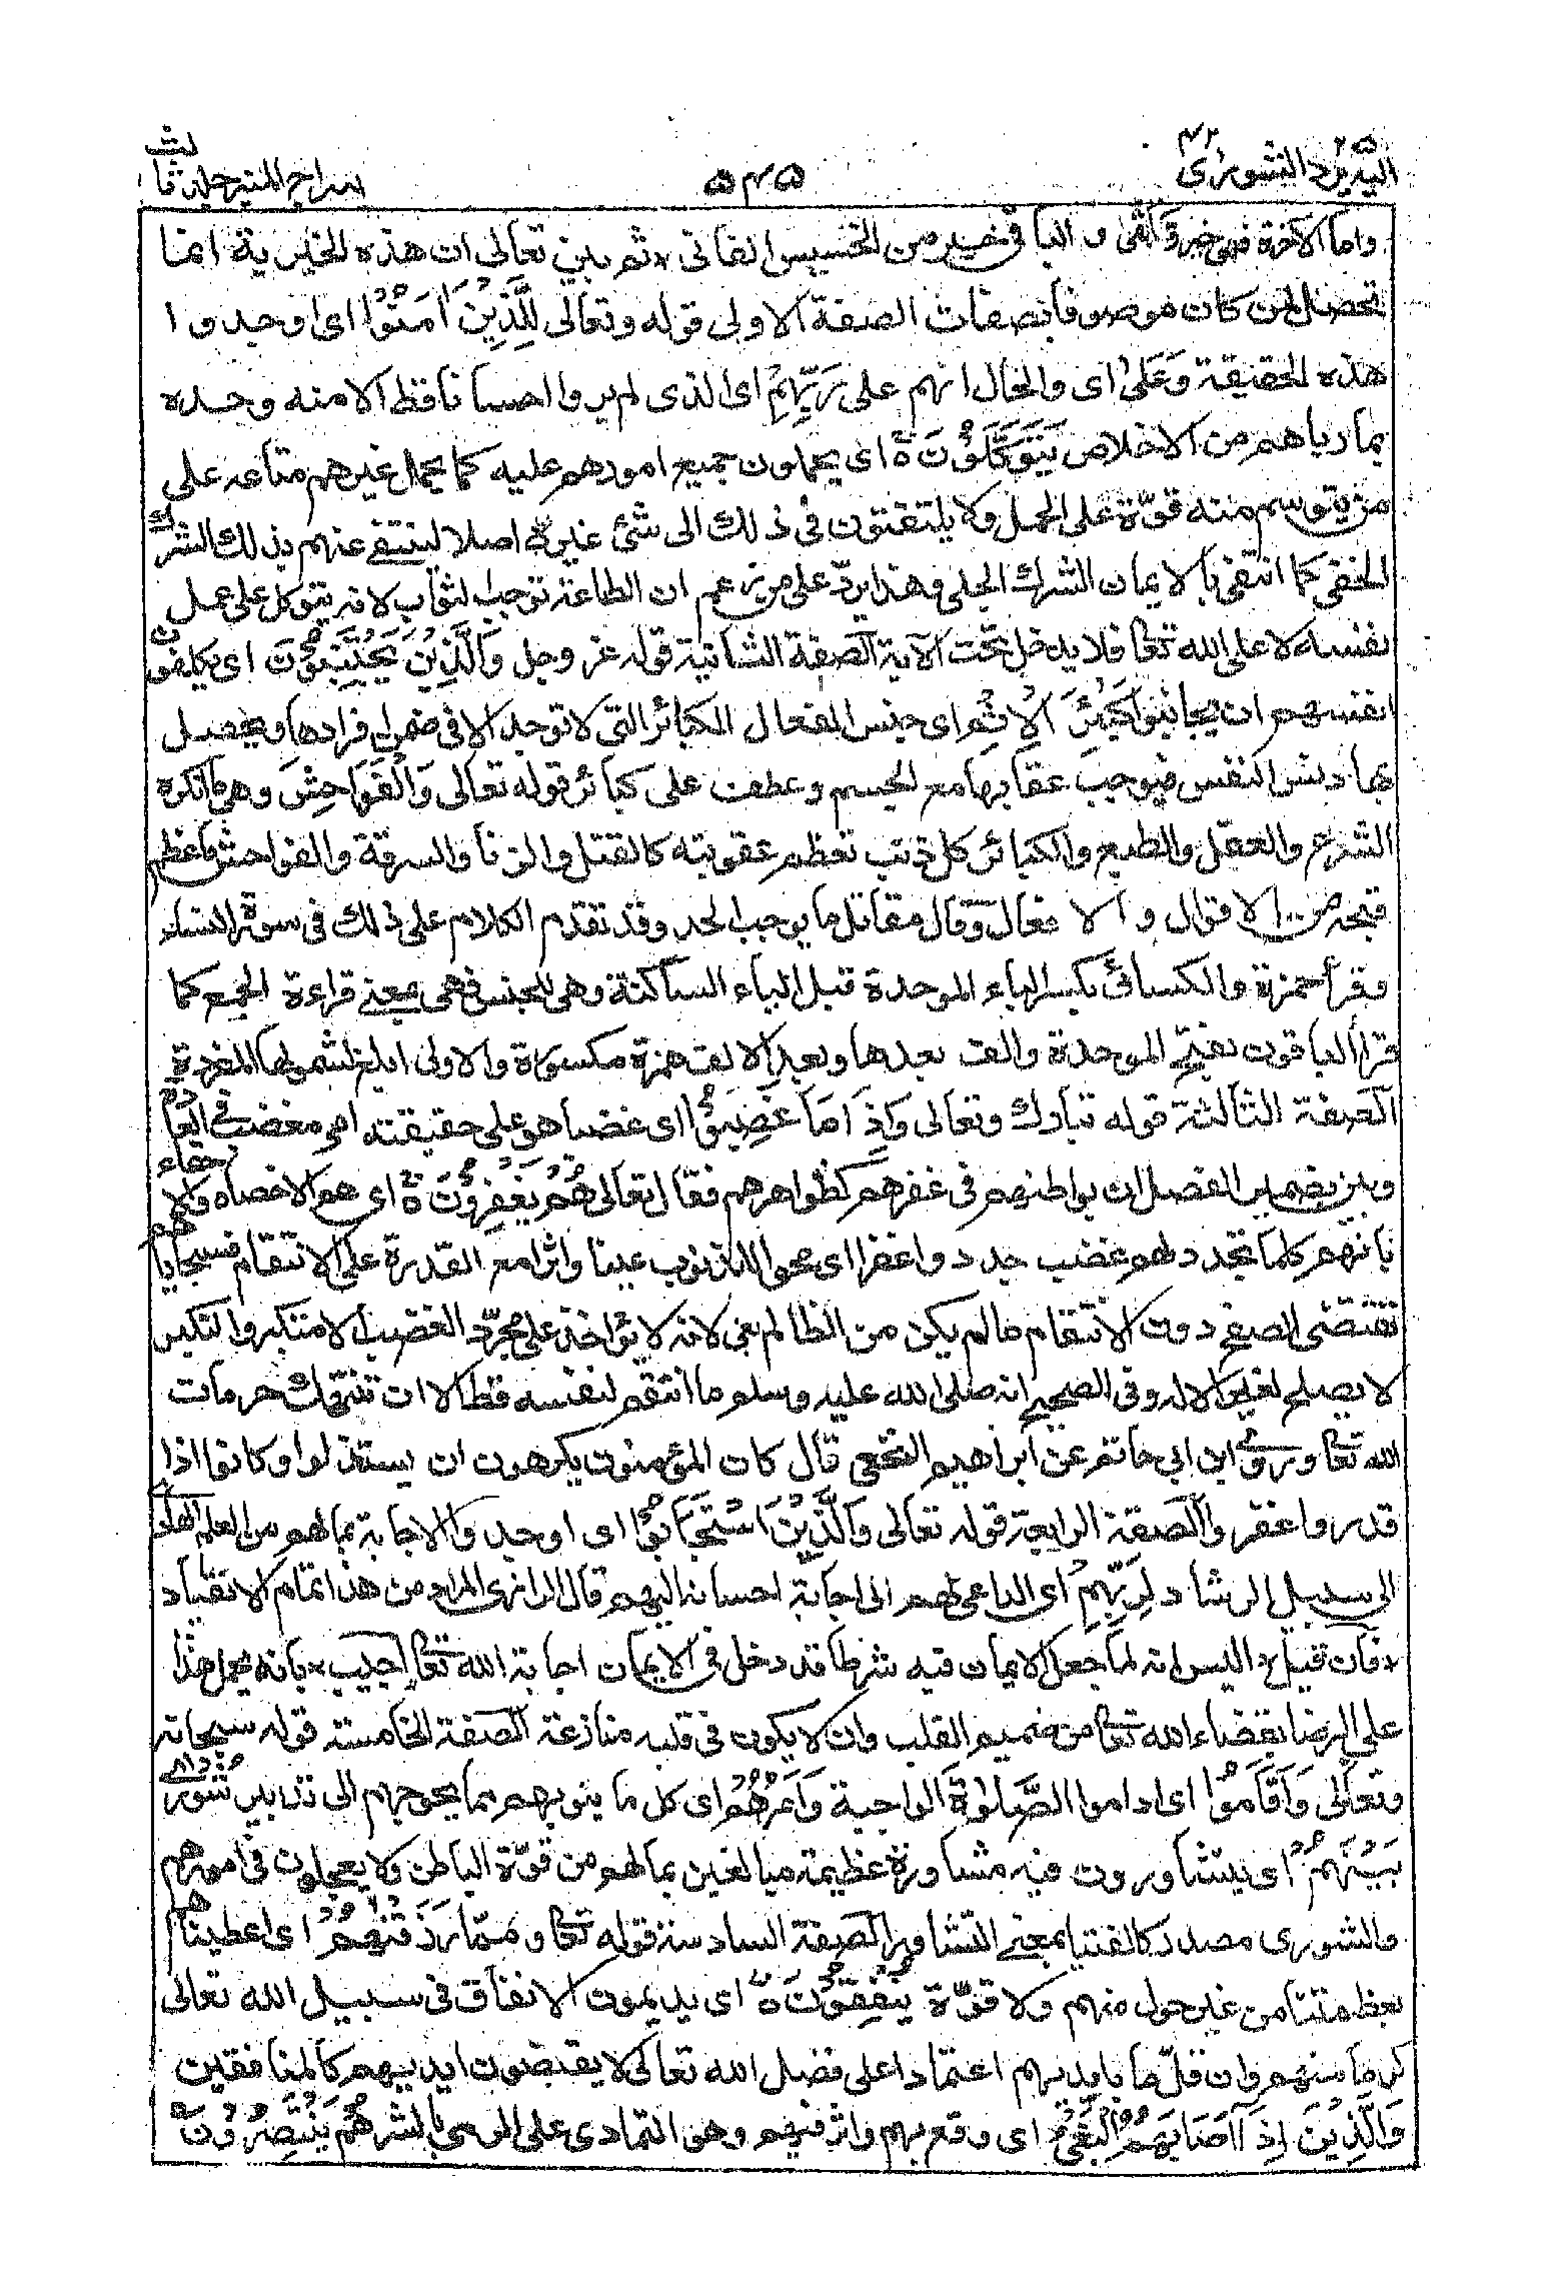 اليه يرد ٢٥ الشورى ٤٢
٥٤٥
سراج المنير جلد ثالث
واما الآخرة فهى خير وابقى والباقى خير من الخسيس الفانى ثم بين تعالى ان هذه الخيرية انما
تحصل لمن كان موصوفا بصفات الصفة الاولى قوله وتعالى لِلَّذِيْنَ اٰمَنُوْا اى اوجدوا
هذه الحقيقة وَعَلٰى اى والحال انهم على رَبِّهِمْ اى الذى لم يروا احسانا قط الا منه وحده
بما رباهم من الاخلاص يَتَوَكَّلُوْنَ ۚ اى يحملون جميع امورهم عليه كما يحمل غيرهم متاعه على
من يتوسم منه قوّة على الحمل ولا يلتفتون فى ذلك الى شئ غيره اصلا لينتفى عنهم بذلك الشرك
الخفى كما انتفى بالايمان الشرك الجلى وهذا يردّ على من زعم ان الطاعة توجب الثواب لانه يتوكل على عمل
نفسه لا على الله تعالى فلا يدخل تحت الآية الصفة الثانية قوله عز وجل وَالَّذِيْنَ يَجْتَنِبُوْنَ اى يكلفون
انفسهم ان يجانبوا كَبٰٓئِرَ الْاِثْمِ اى جنس الفعال الكبائر التى لا توجد الا فى ضمن افرادها ويحصل
بها دنس النفس فيوجب عقابها مع الجسم وعطف على كبائر قوله تعالى وَالْفَوَاحِشَ وهى ما انكره
الشرع والعقل والطبع والكبائر كل ذنب تعظم عقوبته كالقتل والزنا والسرقة والفواحش ما عظم
قبحه من الاقوال والافعال وقال مقاتل ما يوجب الحد وقد تقدم الكلام على ذلك فى سورة النساء
وقرأ حمزة والكسائى بكسر الباء الموحدة قبل الياء الساكنة وهى للجنس فهى بمعنى قراءة الجمع كما
قرأ الباقون بفتح الموحدة والف بعدها وبعد الالف همزة مكسورة والاولى ابلغ لشمولها المفردة
الصفة الثالثة قوله تبارك وتعالى وَاِذَا مَا غَضِبُوْا اى غضبا هو على حقيقته من امر مغضب فى العادة
وبين بضمير الفصل ان بواطنهم فى غفرهم كظواهرهم فقال تعالى هُمْ يَغْفِرُوْنَ ۚ اى هم الاخصاء والاحقاء
بانهم كلما تجدد لهم غضب جددوا غفرا اى محوا للذنوب عينا واثرا مع القدرة على الانتقام فسجاياهم
تقتضى الصفح دون الانتقام مالم يكن من الظالم بغى لانه لا يؤاخذ على مجرّد الغضب الا متكبر والتكبر
لا يصلح لغير الاله وفى الصحيح انه صلى الله عليه وسلم ما انتقم لنفسه قط الا ان تنتهك حرمات
الله تعالى وروى ابن ابى حاتم عن ابراهيم النخعى قال كان المؤمنون يكرهون ان يستذلوا وكانوا اذا
قدروا غفروا الصفة الرابعة قوله تعالى وَالَّذِيْنَ اسْتَجَابُوْا اى اوجدوا الاجابة بما لهم من العلم الهادى
الى سبيل الرشاد لِرَبِّهِمْ اى الداعى لهم الى اجابة احسانه اليهم قال الرازى المراد من هذا تمام الانقياد
فان قيل اليس انه لما جعل الايمان فيه شرطا قد دخل فى الايمان اجابة الله تعالى اجيب بانه يحمل هذا
على الرضا بقضاء الله تعالى من صميم القلب وان لا يكون فى قلبه منازعة الصفة الخامسة قوله سبحانه
وتعالى وَاَقَامُوا اى اداموا الصَّلٰوةَ الواجبة وَاَمْرُهُمْ اى كل ما ينوبهم مما يحوجهم الى تدبير شُوْرٰى
بَيْنَهُمْ اى يتشاورون فيه مشاورة عظيمة مبالغين بما لهم من قوّة الباطن ولا يعجلون فى امورهم
والشورى مصدر كالفتيا بمعنى التشاور الصفة السادسة قوله تعالى وَمِمَّا رَزَقْنٰهُمْ اى اعطيناهم
بعظمتنا من غير حول منهم ولا قوّة يُنْفِقُوْنَ ۚ اى يديمون الانفاق فى سبيل الله تعالى
كرما منهم وان قلّ ما بايديهم اعتمادا على فضل الله تعالى لا يقبضون ايديهم كالمنافقين
وَالَّذِيْنَ اِذَآ اَصَابَهُمُ الْبَغْىُ اى وقع بهم واثر فيهم وهو التمادى على الرمى بالشر هُمْ يَنْتَصِرُوْنَ